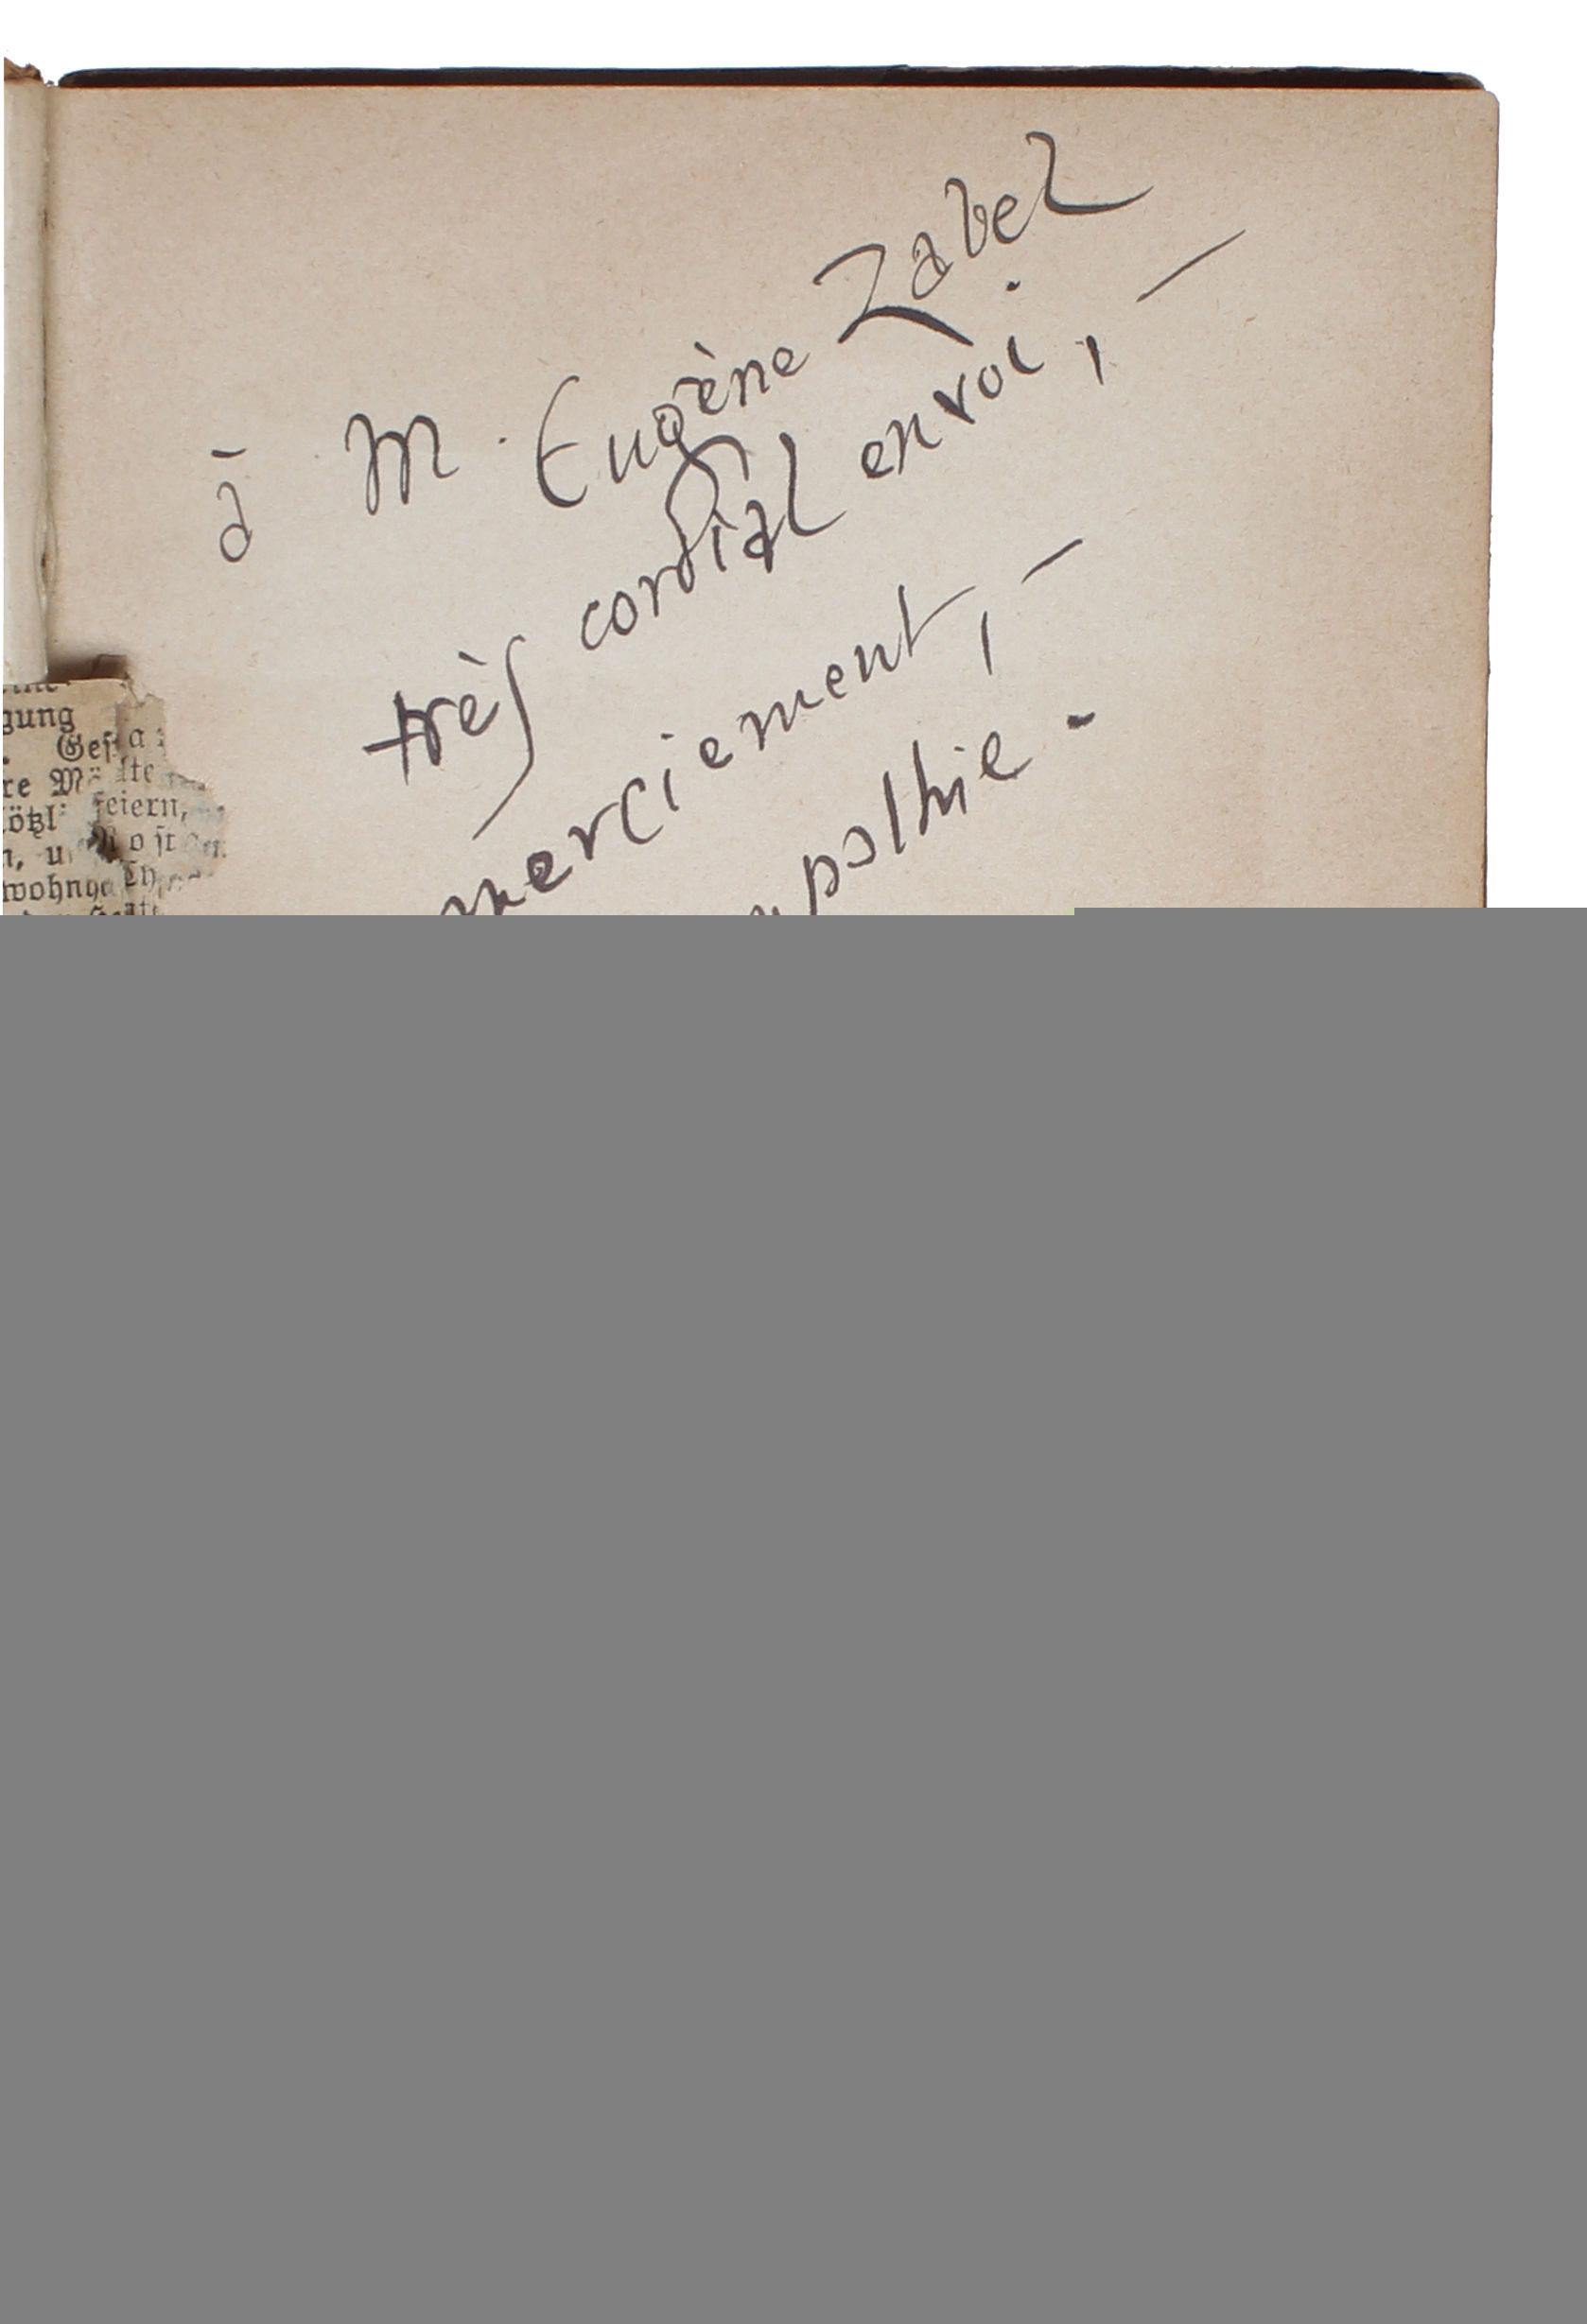 à M. Eugène Zabel
très cordial envoi, —
merciement, —
pathie -
gung
Ges
a
re M
lte
feiern,
ötzl
o st
n, u
wohn